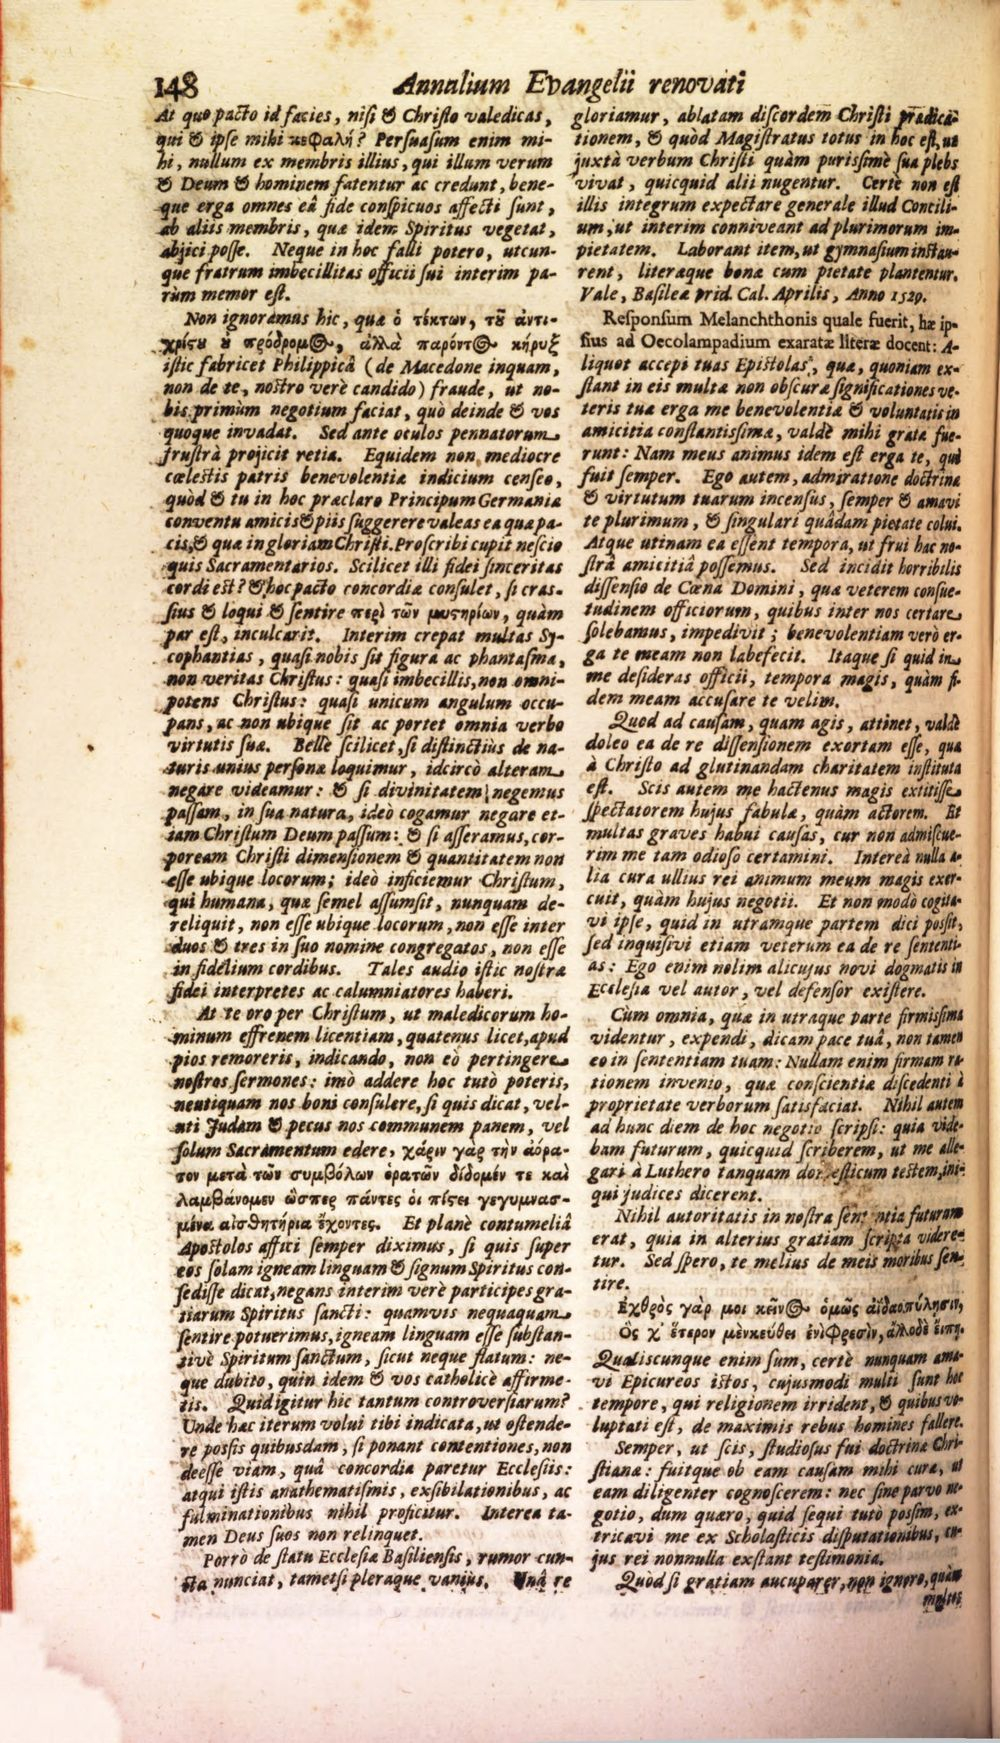 148 Annalium Evangelii renovati
At quo pacto id facies, niſi & Chriſto valedicas,
qui & ipſe mihi κεφαλή? Perſuaſum enim mi-
hi, nullum ex membris illius, qui illum verum
& Deum & hominem fatentur ac credunt, bene-
que erga omnes eâ fide conſpicuos affecti ſunt,
ab aliis membris, quæ idem Spiritus vegetat,
abjici poſſe. Neque in hoc falli potero, utcun-
que fratrum imbecillitas officii ſui interim pa-
rùm memor eſt.
Non ignoramus hîc, quæ ὁ τέκτων, τοῦ ἀντι-
χρίςου ὁ πρόδρομος, ἀλλὰ παρόντος κήρυξ
iſtic fabricet Philippicâ (de Macedone inquam,
non de te, noſtro verè candido) fraude, ut no-
bis primùm negotium faciat, quò deinde & vos
quoque invadat. Sed ante oculos pennatorum
fruſtrà projicit retia. Equidem non mediocre
cœleſtis patris benevolentiæ indicium cenſeo,
quòd & tu in hoc præclaro Principum Germaniæ
conventu amicis & piis ſuggerere valeas ea quæ pa-
cis, & quæ in gloriam Chriſti. Proſcribi cupit neſcio
quis Sacramentarios. Scilicet illi fidei ſinceritas
cordi eſt? & hoc pacto concordiæ conſulet, ſi craſ-
ſius & loqui & ſentire περὶ τῶν μυςηρίων, quàm
par eſt, inculcarit. Interim crepat multas Sy-
cophantias, quaſi nobis ſit figura ac phantaſma,
non veritas Chriſtus: quaſi imbecillis, non omni-
potens Chriſtus: quaſi unicum angulum occu-
pans, ac non ubique ſit ac portet omnia verbo
virtutis ſuæ. Bellè ſcilicet, ſi diſtinctius de na-
turis unius perſonæ loquimur, idcircò alteram
negare videamur: & ſi divinitatem negemus
paſſam, in ſua natura, ideò cogamur negare et-
iam Chriſtum Deum paſſum: & ſi aſſeramus, cor-
poream Chriſti dimenſionem & quantitatem non
eſſe ubique locorum; ideò inficiemur Chriſtum,
qui humana, quæ ſemel aſſumſit, nunquam de-
reliquit, non eſſe ubique locorum, non eſſe inter
duos & tres in ſuo nomine congregatos, non eſſe
in fidelium cordibus. Tales audio iſtic noſtræ
fidei interpretes ac calumniatores haberi.
At te oro per Chriſtum, ut maledicorum ho-
minum effrenem licentiam, quatenus licet, apud
pios remoreris, indicando, non eò pertingere
noſtros ſermones: imò addere hoc tutò poteris,
neutiquam nos boni conſulere, ſi quis dicat, vel-
uti Judam & pecus nos communem panem, vel
ſolum Sacramentum edere, χάριν γὰρ τὴν ἀόρα-
τον μετὰ τῶν συμβόλων ὁρατῶν δίδομέν τε καὶ
λαμβάνομεν ὥσπερ πάντες οἱ πίςει γεγυμνασ-
μένα αἰσθητήρια ἔχοντες. Et planè contumeliâ
Apoſtolos affici ſemper diximus, ſi quis ſuper
eos ſolam igneam linguam & ſignum Spiritus con-
ſediſſe dicat, negans interim verè participes gra-
tiarum Spiritus ſancti: quamvis nequaquam
ſentire potuerimus, igneam linguam eſſe ſubſtan-
tivè Spiritum ſanctum, ſicut neque flatum: ne-
que dubito, quin idem & vos catholicè affirme-
tis. Quid igitur hîc tantum controverſiarum?
Unde hæc iterum volui tibi indicata, ut oſtende-
re poſſis quibusdam, ſi ponant contentiones, non
deeſſe viam, quâ concordia paretur Eccleſiis:
atqui iſtis anathematiſmis, exſibilationibus, ac
fulminationibus nihil proficitur. Interea ta-
men Deus ſuos non relinquet.
Porrò de ſtatu Eccleſiæ Baſilienſis, rumor cun-
cta nunciat, tametſi pleraque vanius. Unâ re
gloriamur, ablatam diſcordem Chriſti prædica-
tionem, & quòd Magiſtratus totus in hoc eſt, ut
juxtà verbum Chriſti quàm puriſſimè ſua plebs
vivat, quicquid alii nugentur. Certè non eſt
illis integrum expectare generale illud Concili-
um, ut interim conniveant ad plurimorum im-
pietatem. Laborant item, ut gymnaſium inſtau-
rent, literæque bonæ cum pietate plantentur.
Vale, Baſileæ prid. Cal. Aprilis, Anno 1529.
Reſponſum Melanchthonis quale fuerit, hæ ip-
ſius ad Oecolampadium exaratæ literæ docent: A-
liquot accepi tuas Epiſtolas, quæ, quoniam ex-
ſtant in eis multæ non obſcuræ ſignificationes ve-
teris tuæ erga me benevolentiæ & voluntatis in
amicitia conſtantiſſimæ, valdè mihi gratæ fue-
runt: Nam meus animus idem eſt erga te, qui
fuit ſemper. Ego autem, admiratione doctrinæ
& virtutum tuarum incenſus, ſemper & amavi
te plurimum, & ſingulari quâdam pietate colui.
Atque utinam ea eſſent tempora, ut frui hac no-
ſtrâ amicitiâ poſſemus. Sed incidit horribilis
diſſenſio de Cœna Domini, quæ veterem conſue-
tudinem officiorum, quibus inter nos certare
ſolebamus, impedivit; benevolentiam verò er-
ga te meam non labefecit. Itaque ſi quid in
me deſideras officii, tempora magis, quàm fi-
dem meam accuſare te velim.
Quod ad cauſam, quam agis, attinet, valdè
doleo ea de re diſſenſionem exortam eſſe, quæ
à Chriſto ad glutinandam charitatem inſtituta
eſt. Scis autem me hactenus magis extitiſſe
ſpectatorem hujus fabulæ, quàm actorem. Et
multas graves habui cauſas, cur non admiſcue-
rim me tam odioſo certamini. Intereà nulla a-
lia cura ullius rei animum meum magis exer-
cuit, quàm hujus negotii. Et non modò cogita-
vi ipſe, quid in utramque partem dici poſſit,
ſed inquiſivi etiam veterum ea de re ſententi-
as: Ego enim nolim alicujus novi dogmatis in
Eccleſia vel autor, vel defenſor exiſtere.
Cùm omnia, quæ in utraque parte firmiſſima
videntur, expendi, dicam pace tuâ, non tamen
eo in ſententiam tuam: Nullam enim firmam ra-
tionem invenio, quæ conſcientiæ diſcedenti à
proprietate verborum ſatisfaciat. Nihil autem
ad hunc diem de hoc negotio ſcripſi: quia vide-
bam futurum, quicquid ſcriberem, ut me alle-
gari à Luthero tanquam domeſticum teſtem, ini-
qui judices dicerent.
Nihil autoritatis in noſtra ſententia futurum
erat, quia in alterius gratiam ſcripta videre-
tur. Sed ſpero, te melius de meis moribus ſen-
tire.
Εχθρὸς γὰρ μοι κεῖνος ὁμῶς ἀΐδαο πύλησιν,
Ος χ' ἕτερον μὲν κεύθει ἐνὶ φρεσὶν, ἄλλο δὲ εἴπῃ.
Qualiscunque enim ſum, certè nunquam ama-
vi Epicureos iſtos, cujusmodi multi ſunt hoc
tempore, qui religionem irrident, & quibus vo-
luptati eſt, de maximis rebus homines fallere.
Semper, ut ſcis, ſtudioſus fui doctrinæ Chri-
ſtianæ: fuitque ob eam cauſam mihi curæ, ut
eam diligenter cognoſcerem: nec ſine parvo ne-
gotio, dum quæro, quid ſequi tutò poſſim, ex-
tricavi me ex Scholaſticis diſputationibus, cu-
jus rei nonnulla exſtant teſtimonia.
Quòd ſi gratiam aucuparer, non ignoro, quàm
multos